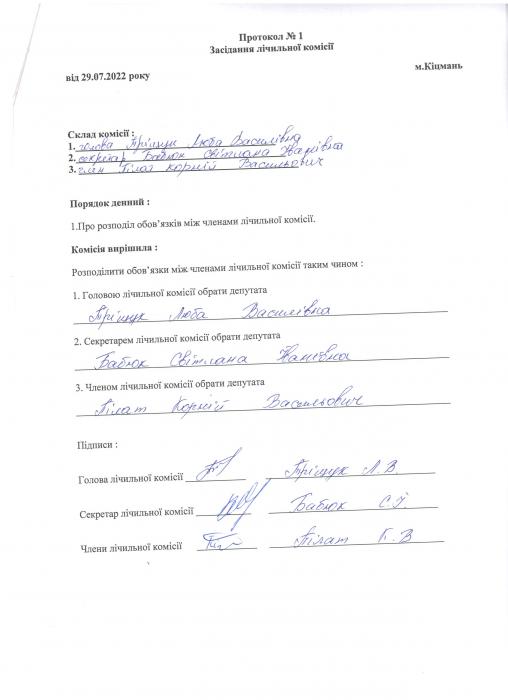 Протокол № 1
Засідання лічильної комісії
м.Кіцмань
від 29.07.2022 року
Склад комісії :
1. голова Тріщук Люба Василівна
2. секретар Бабюк Світлана Іванівна
3. член Пілат Корній Васильович
Порядок денний :
1.Про розподіл обов’язків між членами лічильної комісії.
Комісія вирішила :
Розподілити обов’язки між членами лічильної комісії таким чином :
1. Головою лічильної комісії обрати депутата
Тріщук Люба Василівна
2. Секретарем лічильної комісії обрати депутата
Бабюк Світлана Іванівна
3. Членом лічильної комісії обрати депутата
Пілат Корній Васильович
Підписи :
Голова лічильної комісії Тріщук Л.В.
Секретар лічильної комісії Бабюк С.І.
Члени лічильної комісії Пілат К.В